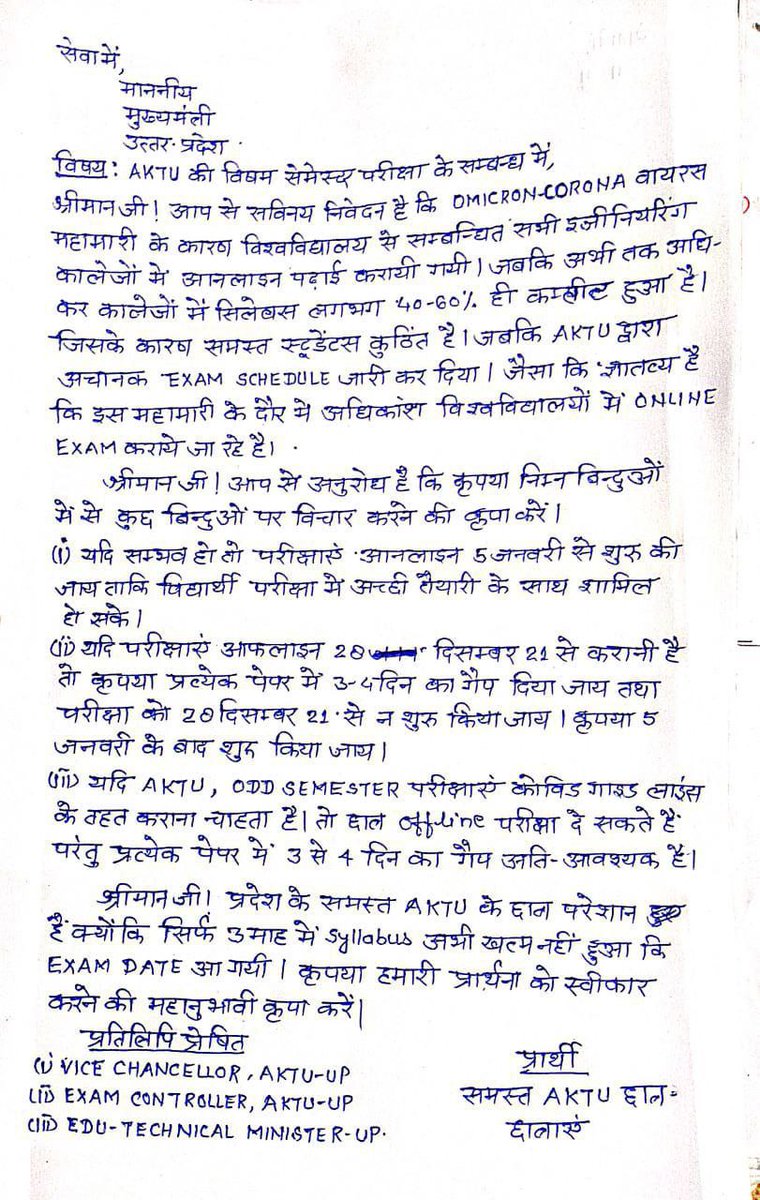 सेवा में,
माननीय
मुख्यमंत्री
उत्तर-प्रदेश.
विषय: AKTU की विषम सेमेस्टर परीक्षा के सम्बन्ध में,
श्रीमान जी! आप से सविनय निवेदन है कि OMICRON-CORONA वायरस
महामारी के कारण विश्वविद्यालय से सम्बन्धित सभी इन्जीनियरिंग
कालेजों में आनलाइन पढ़ाई करायी गयी। जबकि अभी तक अधि-
कर कालेजों में सिलेबस लगभग 40-60% ही कम्प्लीट हुआ है।
जिसके कारण समस्त स्टूडेंटस कुठिंत है। जबकि AKTU द्वारा
अचानक EXAM SCHEDULE जारी कर दिया। जैसा कि ज्ञातव्य है
कि इस महामारी के दौर में अधिकांश विश्वविद्यालयों में ONLINE
EXAM कराये जा रहे है।
श्रीमान जी! आप से अनुरोध है कि कृपया निम्न बिन्दुओं
में से कुछ बिन्दुओं पर विचार करने की कृपा करें।
(i) यदि सम्भव हो तो परीक्षाएं आनलाइन 5 जनवरी से शुरु की
जाय ताकि विद्यार्थी परीक्षा में अच्छी तैयारी के साथ शामिल
हो सके।
(ii) यदि परीक्षाएं आफलाइन 28 दिसम्बर 21 से करानी है
तो कृपया प्रत्येक पेपर में 3-4 दिन का गैप दिया जाय तथा
परीक्षा को 28 दिसम्बर 21 से न शुरु किया जाय। कृपया 5
जनवरी के बाद शुरु किया जाय।
(iii) यदि AKTU, ODD SEMESTER परीक्षाएं कोविड गाइड लाइंस
के तहत कराना चाहता है। तो छात्र off-line परीक्षा दे सकते हैं
परंतु प्रत्येक पेपर में 3 से 4 दिन का गैप अति-आवश्यक है।
श्रीमान जी। प्रदेश के समस्त AKTU के छात्र परेशान
हैं क्योंकि सिर्फ 3 माह में syllabus अभी खत्म नहीं हुआ कि
EXAM DATE आ गयी। कृपया हमारी प्रार्थना को स्वीकार
करने की महानुभावी कृपा करें।
प्रतिलिपि प्रेषित
(i) VICE CHANCELLOR, AKTU-UP
(ii) EXAM CONTROLLER, AKTU-UP
(iii) EDU-TECHNICAL MINISTER-UP.
प्रार्थी
समस्त AKTU छात्र-
छात्राएं